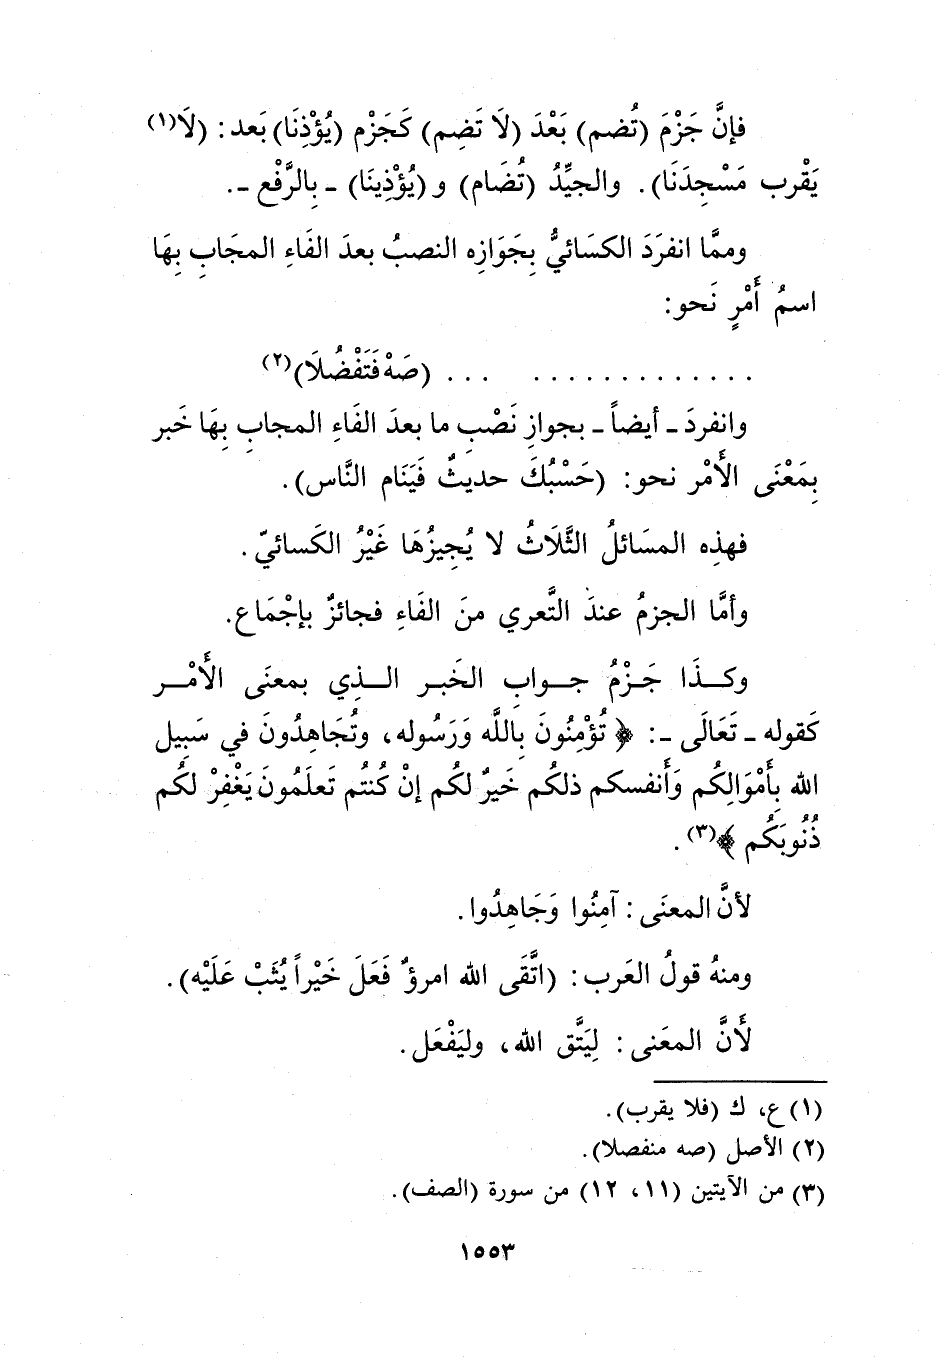 فإنَّ جَزْمَ (تُضم) بَعْدَ (لَا تَضِم) كَجَزْم (يُؤْذِنَا) بَعد: (لَا(١)
يَقْرب مَسْجِدَنَا). والجيِّدُ (تُضَام) و (يُؤْذِينَا) ـ بِالرَّفْع ـ.
وممَّا انفرَدَ الكسَائيُّ بِجَوَازِه النصبُ بعدَ الفَاءِ المجَابِ بِهَا
اسمُ أَمْرٍ نَحو:
. . . . . . . . . . . . . . . . (صَهْ فَتَفْضُلَا)(٢)
وانفردَ ـ أيضاً ـ بجوازِ نَصْبِ ما بعدَ الفَاءِ المجابِ بِهَا خَبر
بِمَعْنَى الأَمْر نحو: (حَسْبُكَ حديثٌ فَيَنَام النَّاس).
فهذِه المسَائلُ الثَّلَاثُ لا يُجِيزُهَا غَيْرُ الكَسائيّ.
وأمَّا الجزمُ عندَ التَّعري منَ الفَاءِ فجائزٌ بإجْمَاع.
وكـذَا جَـزْمُ جـوابِ الخَبـر الـذِي بمعنَى الأَمْـر
كَقوله ـ تَعَالَى ـ: ﴿تُؤْمِنُونَ بِاللَّه وَرَسُوله، وتُجَاهِدُونَ في سَبِيل
الله بِأَمْوَالِكُم وَأَنفسكم ذلكُم خَيرٌ لكُم إنْ كُنتُم تَعلَمُونَ يَغْفِرْ لكُم
ذُنُوبَكُم﴾(٣).
لأنَّ المعنَى: آمِنُوا وَجَاهِدُوا.
ومنهُ قولُ العَرب: (اتَّقَى الله امرؤٌ فَعَلَ خَيْراً يُثَبْ عَلَيْه).
لأَنَّ المعَنى: لِيَتَّق الله، وليَفْعَل.
(١) ع، ك (فلا يقرب).
(٢) الأصل (صه منفصلا).
(٣) من الآيتين (١١، ١٢) من سورة (الصف).
١٥٥٣